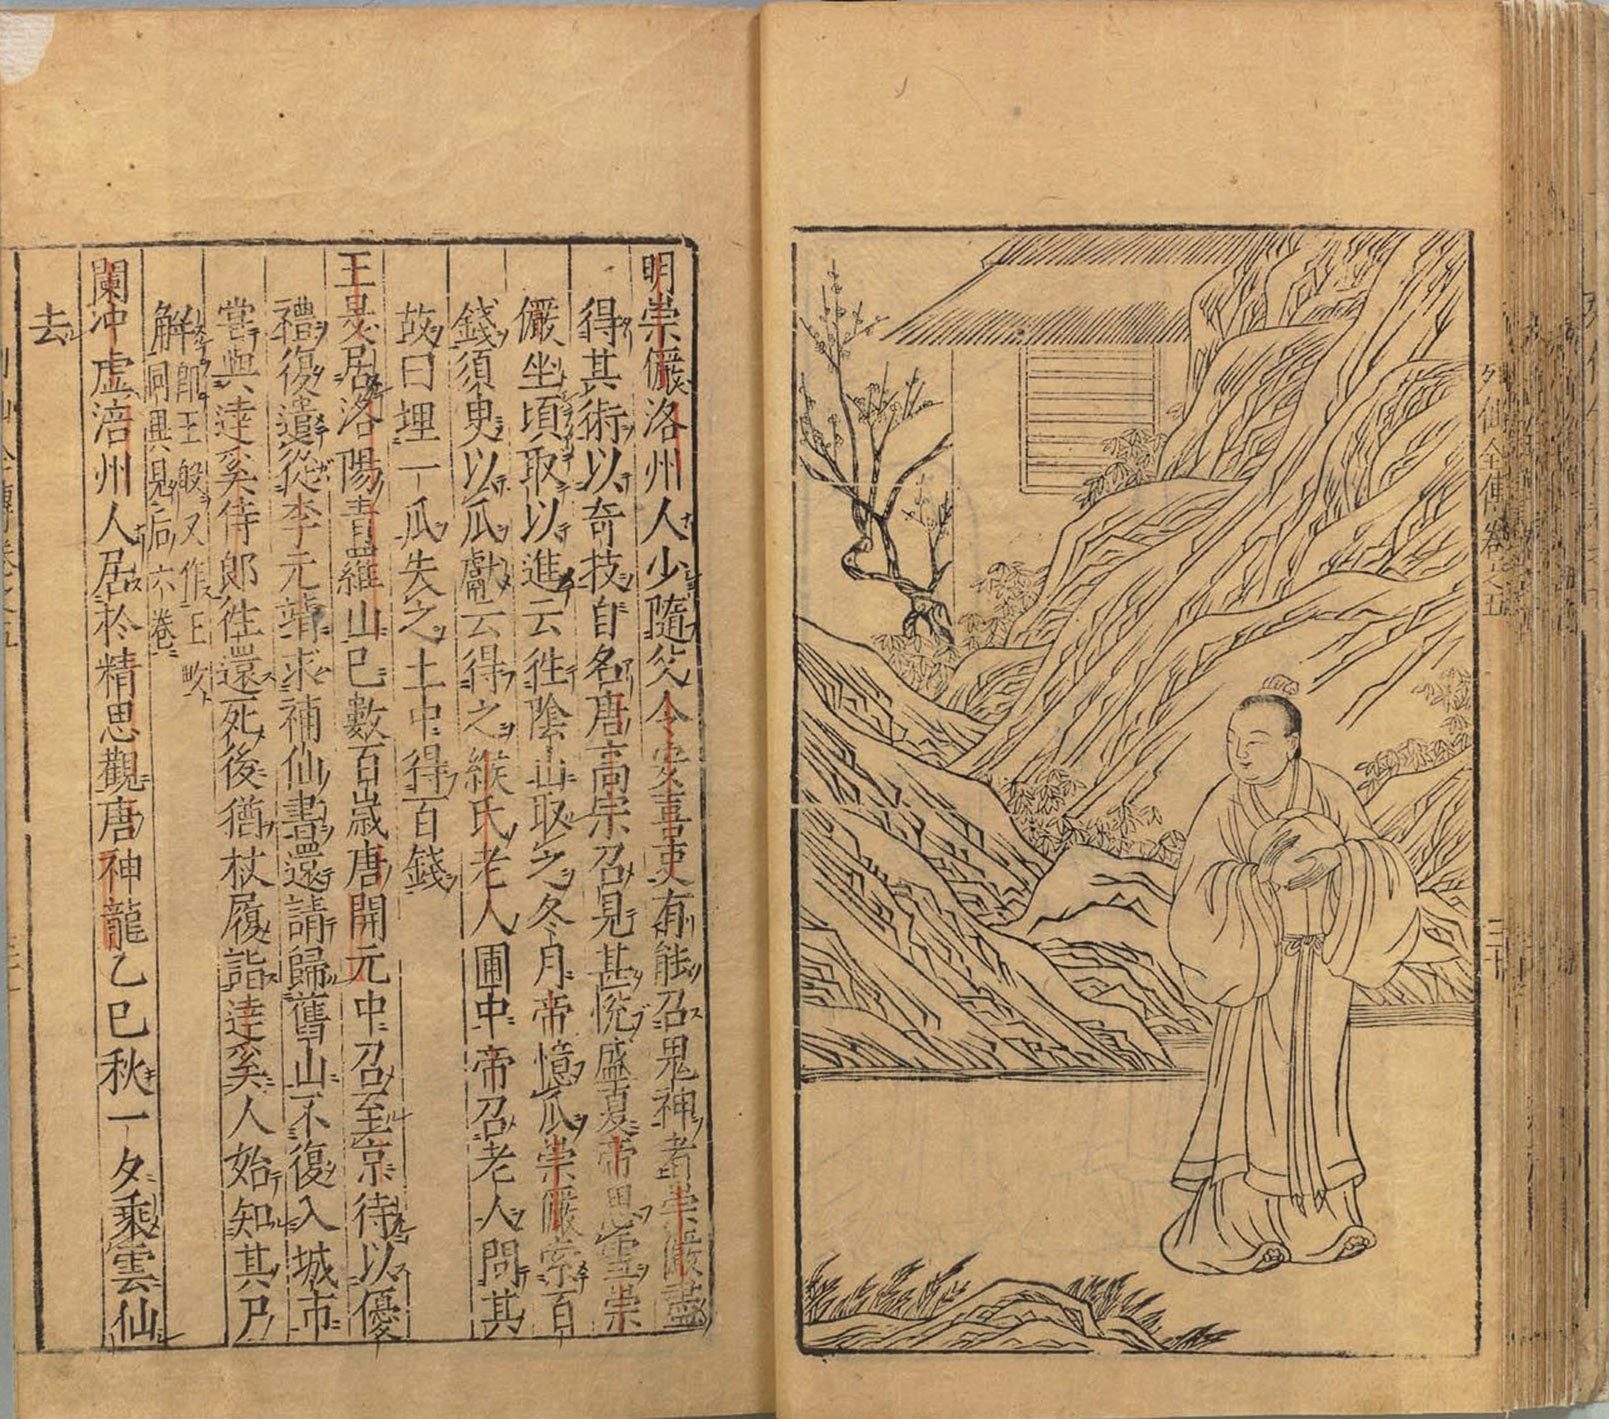 列仙全傳卷之五
三十
明崇儼洛州人少隨父令安喜吏有能召鬼神者崇儼盡
得其術以奇技自名唐高宗召見甚悅盛夏帝思雪崇
儼坐頃取以進云徃陰山取之冬月帝憶瓜崇儼索百
錢須臾以瓜獻云得之緱氏老人圃中帝召老人問其
故曰埋一瓜失之土中得百錢
王旻居洛陽青羅山巳數百歲唐開元中召至京待以優
禮復遣從李元靖求補仙書還請歸舊山不復入城市
嘗與逹奚侍郎徃還死後猶杖履詣逹奚人始知其尸
解
即王般又作王畋
同異見后六卷
闌冲虛涪州人居於精思觀唐神龍乙巳秋一夕乘雲仙
去